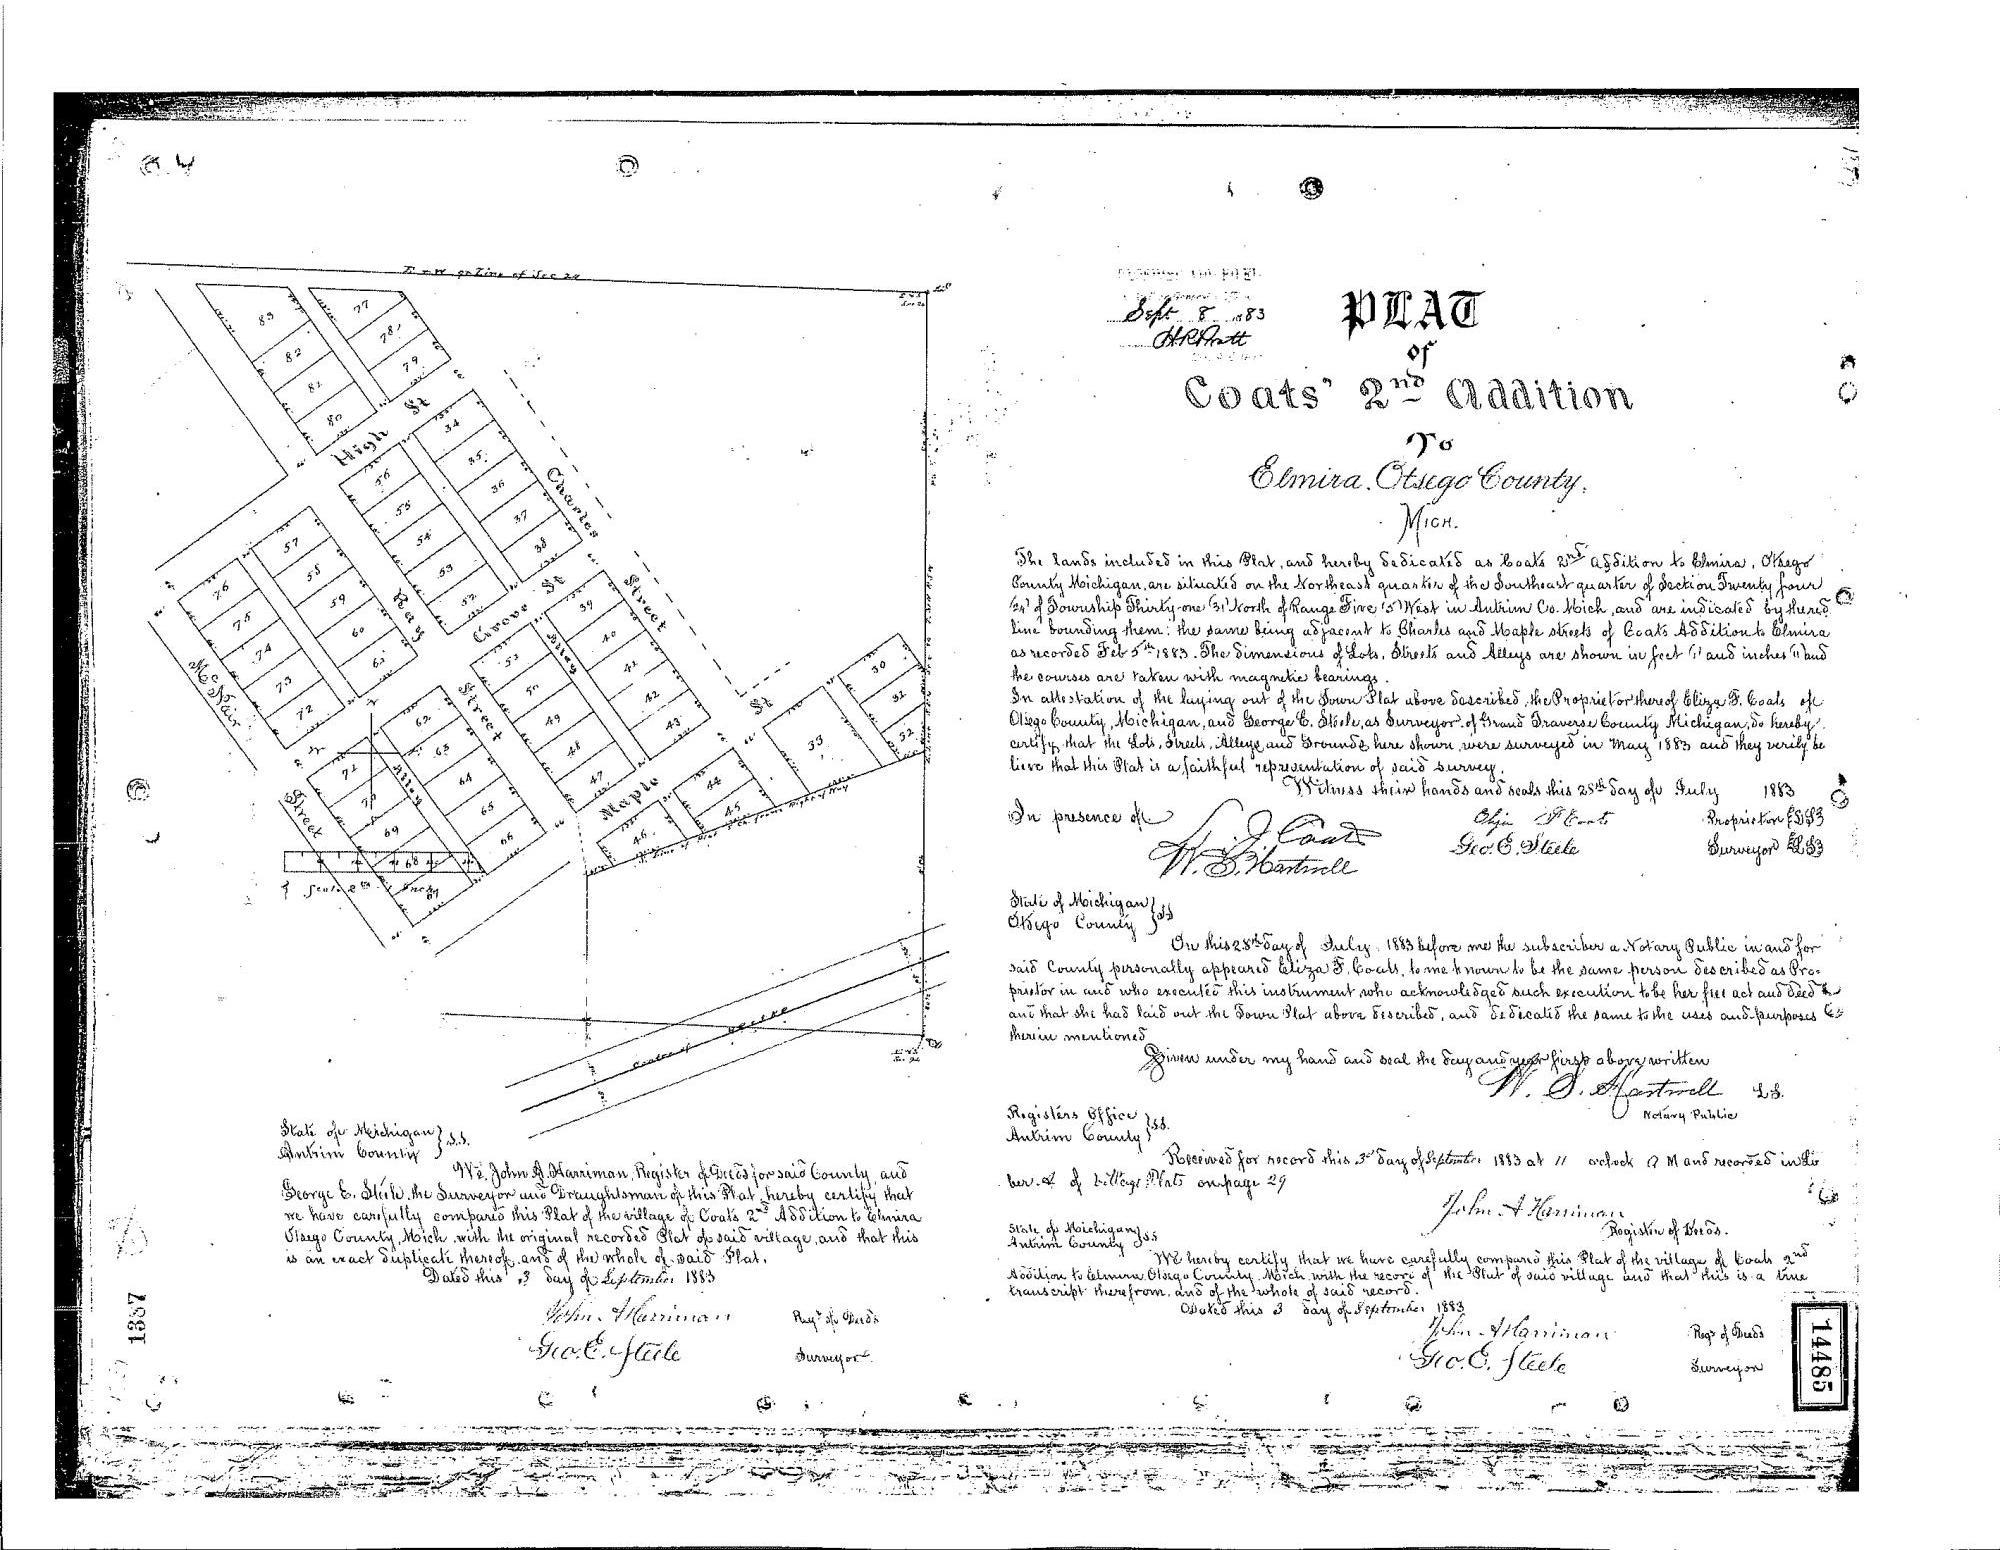 E & W ¼ Line of Sec 24
83
82
81
80
77
78
79
High St
34
35
36
37
38
56
55
54
53
52
Charles
Street
57
58
59
60
61
Ray
Street
76
75
74
73
72
McNair
Street
Grove St
39
40
41
42
43
Alley
51
50
49
48
47
Maple St
62
63
64
65
66
Alley
71
70
69
68
67
46
44
45
33
30
31
32
Right of Way
Centre of
Sept 8 1883
H R Pratt
PLAT
of
Coats' 2nd Addition
To
Elmira, Otsego County,
MICH.
The lands included in this Plat, and hereby dedicated as Coats 2nd Addition to Elmira, Otsego
County Michigan, are situated on the Northeast quarter of the Southeast quarter of Section Twenty four
(24) of Township Thirty-one (31) North of Range Five (5) West in Antrim Co. Mich, and are indicated by the red
line bounding them: the same being adjacent to Charles and Maple streets of Coats Addition to Elmira
as recorded Feb 5th 1883. The dimensions of Lots, Streets and Alleys are shown in feet (') and inches (") and
the courses are taken with magnetic bearings.
In attestation of the laying out of the Town Plat above described, the Proprietor thereof Eliza F. Coats of
Otsego County, Michigan, and George E. Steele, as Surveyor, of Grand Traverse County Michigan, do hereby
certify that the Lots, Streets, Alleys and Grounds here shown were surveyed in May 1883 and they verily be
lieve that this Plat is a faithful representation of said survey.
Witness their hands and seals this 28th day of July 1883
In presence of
Coats
W. S. Hartwell
Eliza F Coats Proprietor
Geo. E. Steele Surveyor
State of Michigan
Otsego County } SS
On this 28th day of July, 1883 before me the subscriber a Notary Public in and for
said County personally appeared Eliza F. Coats, to me known to be the same person described as Pro-
prietor in and who executed this instrument, who acknowledged such execution to be her free act and deed &
and that she had laid out the Town Plat above described, and dedicated the same to the uses and purposes
therein mentioned
Given under my hand and seal the day and year first above written
W. S. Hartwell L.S.
Notary Public
Registers Office
Antrim County } SS.
Received for record this 3d day of September 1883 at 11 o'clock A M and recorded in Li
ber A of Village Plats on page 29
John A Harriman
Register of Deeds.
State of Michigan
Antrim County } SS
We hereby certify that we have carefully compared this Plat of the village of Coats 2nd
Addition to Elmira, Otsego County, Mich with the record of the Plat of said village and that this is a true
transcript therefrom, and of the whole of said record.
Dated this 3 day of September 1883
John A Harriman Regr of Deeds
Geo. E. Steele Surveyor
State of Michigan
Antrim County } S.S.
We, John A. Harriman, Register of Deeds for said County, and
George E. Steele, the Surveyor and Draughtsman of this Plat, hereby certify that
we have carefully compared this Plat of the village of Coats 2nd Addition to Elmira
Otsego County, Mich. with the original recorded Plat of said village, and that this
is an exact duplicate thereof, and of the whole of said Plat.
Dated this 3 day of September 1883
John A Harriman Regr of Deeds
Geo. E. Steele Surveyor
1337
14485